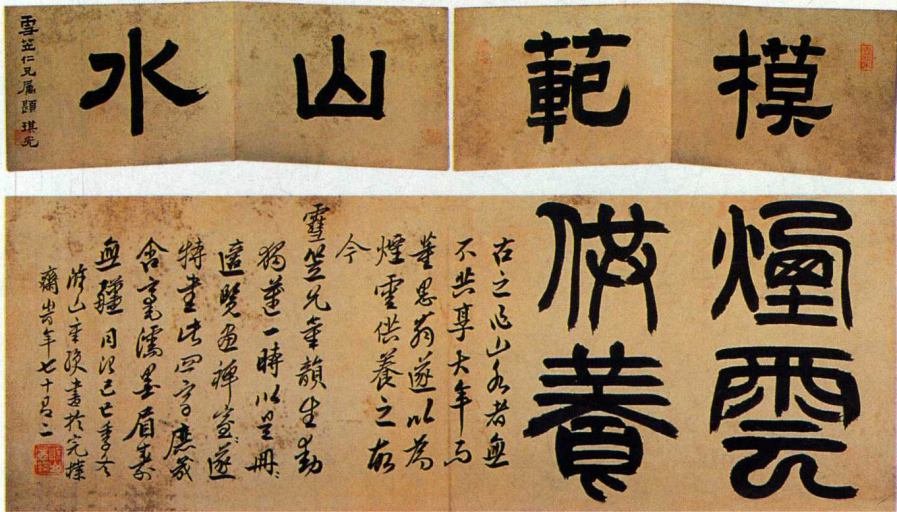 模範
山水
雪笠仁兄屬題 琪光
煙雲
供養
古之作山水者無
不共享大年而
董思翁遂以為
煙雲供養之故
今
雪笠兄氣韻生動
獨一時以是冊
畫禪室遂
特書此四字庶幾
含毫濡墨眉壽
無疆同治己巳季冬
山書於完樸
齋時年七十有二